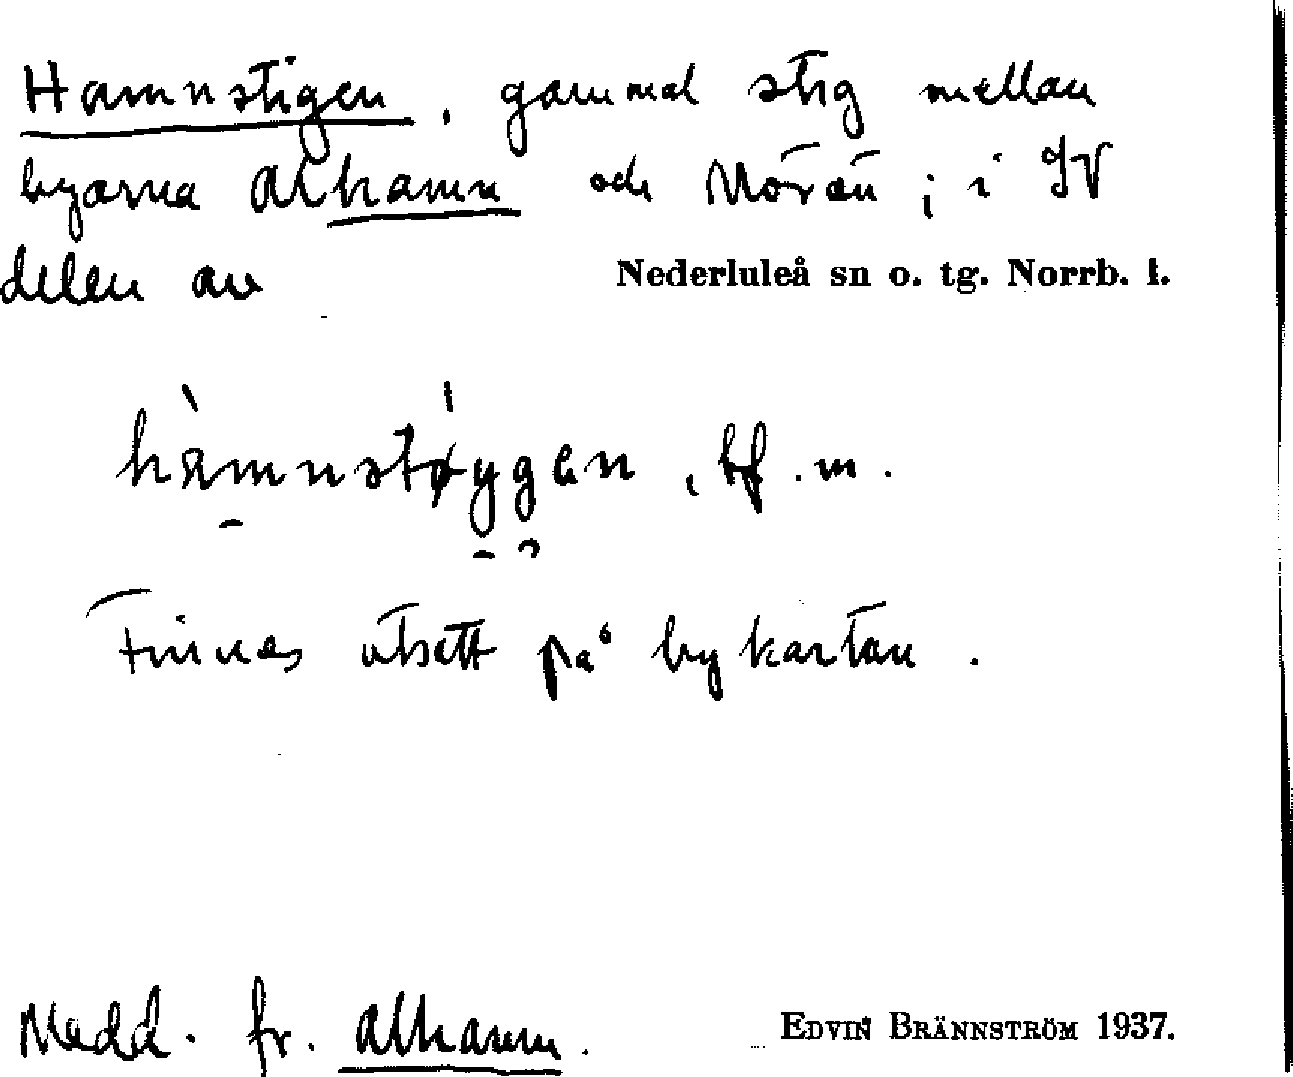 Hamnstigen, gammal stig mellan
byarna Alhamn och Mörön; i SV
delen av Nederluleå sn o. tg. Norrb. l.
hàmnstøygen, bf. m.
Finnes utsatt på bykartan.
Medd. fr. Alhamn.
EDVIN BRÄNNSTRÖM 1937.